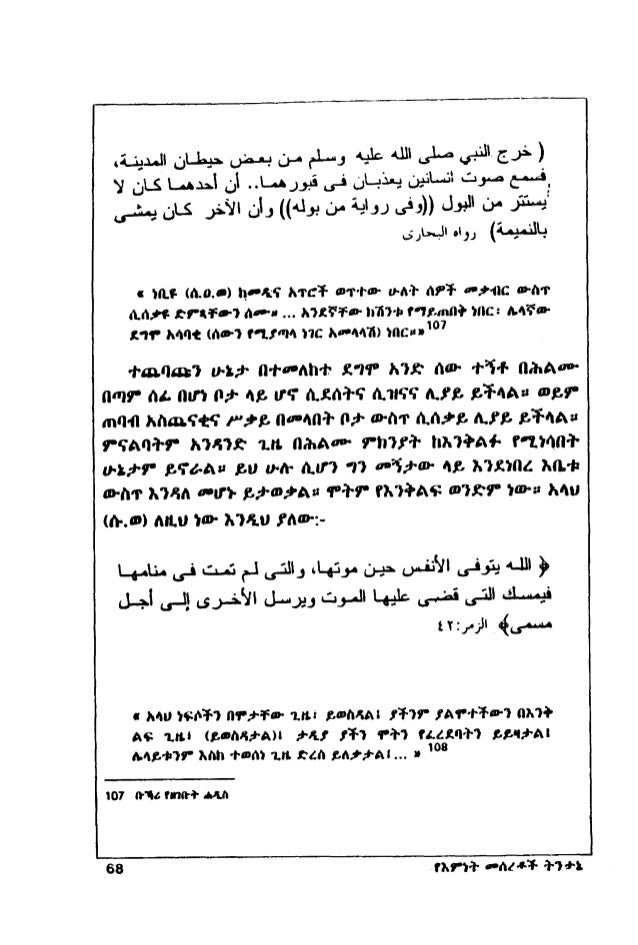 ( خرج النبي صلى الله عليه وسلم من بعض حيطان المدينة،
فسمع صوت انسانين يعذبان فى قبورهما.. أن أحدهما كان لا
يستتر من البول ((وفى رواية من بوله)) وأن الأخر كان يمشى
بالنميمة) رواه البخارى
« ነቢዩ (ሰ.ዐ.ወ) ከመዲና አጥሮች ወጥተው ሁለት ሰዎች መቃብር ውስጥ
ሲሰቃዩ ድምጻቸውን ሰሙ። ... አንደኛቸው ከሽንቱ የማይጠበቅ ነበር፡ ሌላኛው
ደግሞ አሳባቂ (ሰውን የሚያጣላ ነገር አመላላሽ) ነበር።»107
ተጨባጩን ሁኔታ በተመለከተ ደግሞ አንድ ሰው ተኝቶ በሕልሙ
በጣም ሰፊ በሆነ ቦታ ላይ ሆኖ ሲደሰትና ሲዝናና ሊያይ ይችላል። ወይም
ጠባብ አስጨናቂና ሥቃይ በመላበት ቦታ ውስጥ ሲሰቃይ ሊያይ ይችላል።
ምናልባትም አንዳንድ ጊዜ በሕልሙ ምክንያት ከእንቅልፉ የሚነሳበት
ሁኔታም ይኖራል። ይህ ሁሉ ሲሆን ግን መኝታው ላይ እንደነበረ እቤቱ
ውስጥ እንዳለ መሆኑ ይታወቃል። ሞትም የእንቅልፍ ወንድም ነው። አላህ
(ሱ.ወ) ለዚህ ነው እንዲህ ያለው:-
﴿ الله يتوفى الأنفس حين موتها، والتى لم تمت فى منامها
فيمسك التى قضى عليها الموت ويرسل الأخرى إلى أجل
مسمى﴾ الزمر:٤٢
« አላህ ነፍሶችን በሞታቸው ጊዜ፤ ይወስዳል፤ ያችንም ያልሞተችውን በእንቅ
ልፍ ጊዜ፤ (ይወስዳታል)፤ ታዲያ ያችን ሞትን የፈረደባትን ይይዛታል፤
ሌላይቱንም እስከ ተወሰነ ጊዜ ድረስ ይለቃታል፤... » 108
107 ቡኻሪ የዘገቡት ሐዲስ
68 የእምነት መሰረቶች ትንታኔ